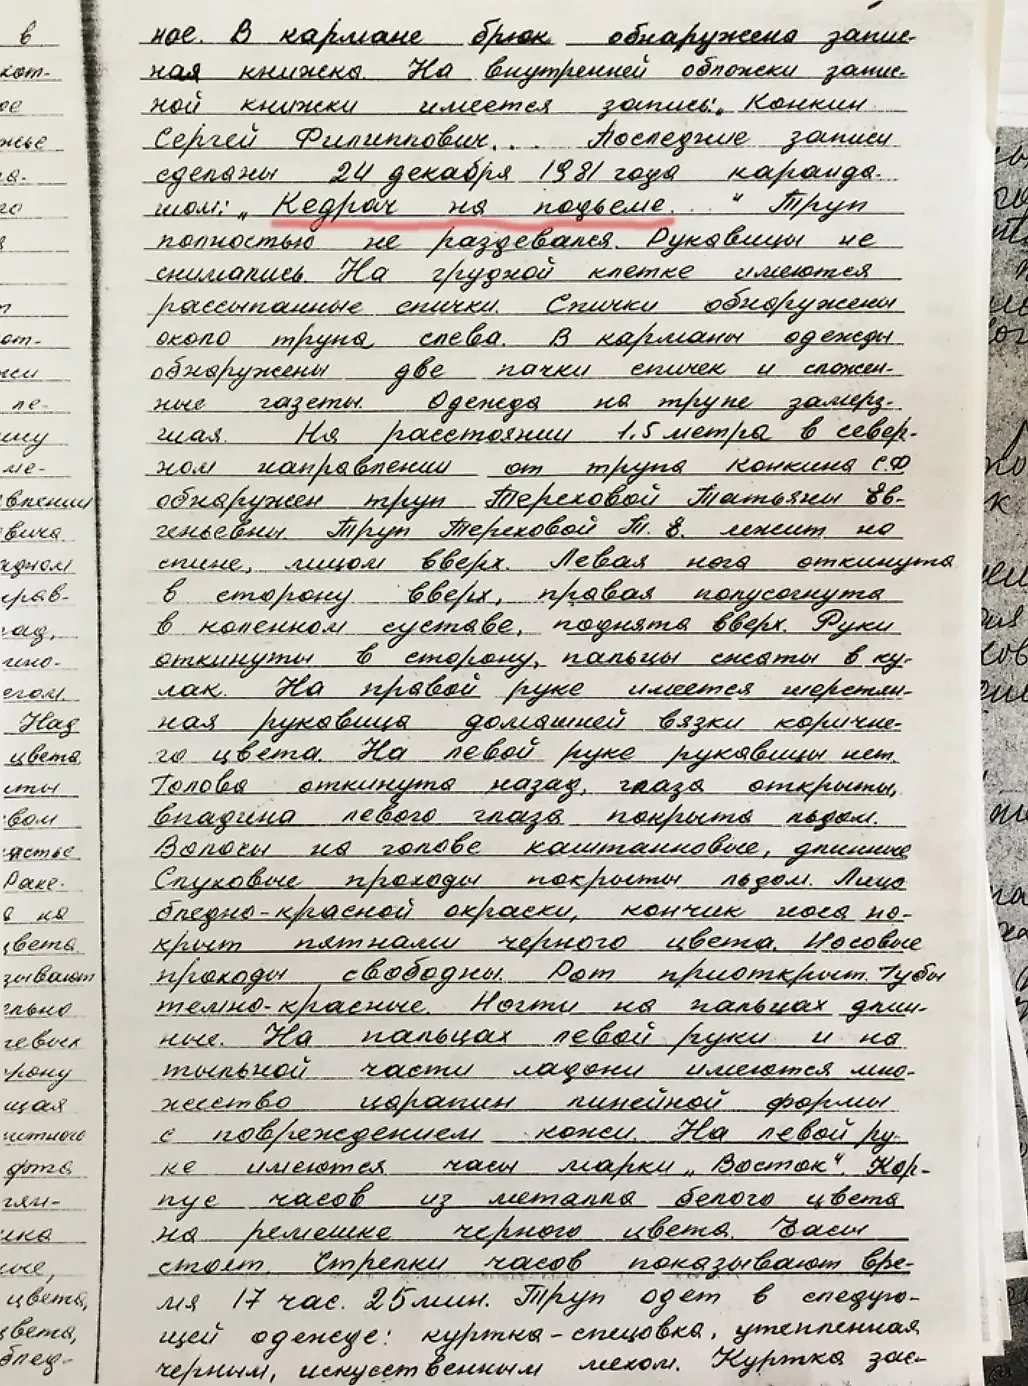 ное. В кармане брюк обнаружена запис-
ная книжка. На внутренней обложки запис-
ной книжки имеется запись: „Конкин
Сергей Филиппович... Последние записи
сделаны 24 декабря 1981 года каранда-
шом: „Кедрач на подъеме. " Труп
полностью не раздевался. Рукавицы не
снимались. На грудной клетке имеются
рассыпанные спички. Спички обнаружены
около трупа слева. В карманы одежды
обнаружены две пачки спичек и сложен-
ные газеты. Одежда на трупе замерз-
шая. На расстоянии 1.5 метра в север-
ном направлении от трупа Конкина С.Ф
обнаружен труп Тереховой Татьяны Ев-
геньевны. Труп Тереховой Т. Е. лежит на
спине, лицом вверх. Левая нога откинута
в сторону вверх, правая полусогнута
в коленном суставе, поднята вверх. Руки
откинуты в сторону, пальцы сжаты в ку-
лак. На правой руке имеется шерстян-
ная рукавица домашней вязки коричне-
го цвета. На левой руке рукавицы нет.
Голова откинута назад, глаза открыты,
впадина левого глаза покрыта льдом.
Волосы на голове каштановые, длинные
Слуховые проходы покрыты льдом. Лицо
бледно-красной окраски, кончик носа по-
крыт пятнами черного цвета. Носовые
проходы свободны. Рот приоткрыт. Губы
темно-красные. Ногти на пальцах длин-
ные. На пальцах левой руки и на
тыльной части ладони имеются мно-
жество царапин линейной формы
с повреждением кожи. На левой ру-
ке имеются часы марки „Восток". Кор-
пус часов из металла белого цвета
на ремешке черного цвета. Часы
стоят. Стрелки часов показывают вре-
мя 17 час. 25 мин. Труп одет в следую-
щей одежде: куртка-спецовка, утепленная
черным, искусственным мехом. Куртка зас-
в
ое
га.
го
ле-
ме-
вича.
рав-
Над
цвета.
вом
а на
цвета
зывают
рону
щая
фта
цвета,
цвета,